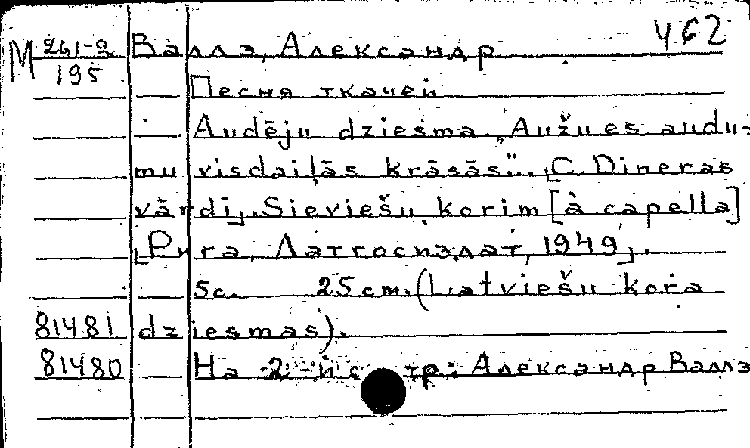 462
М 261-2 Валлэ, Александр
195
Песня ткачей
Audēju dziesma „Aužu es audu-
mu visdaiļās krāsās". [C. Dineras
vārdi]. Sieviešu korim [à capella]
[Рига, Латгосиздат, 1949].
5с. 25cm. (Latviešu kora
81481 dziesmas).
81480 На 2-й стр: Александр Валлэ